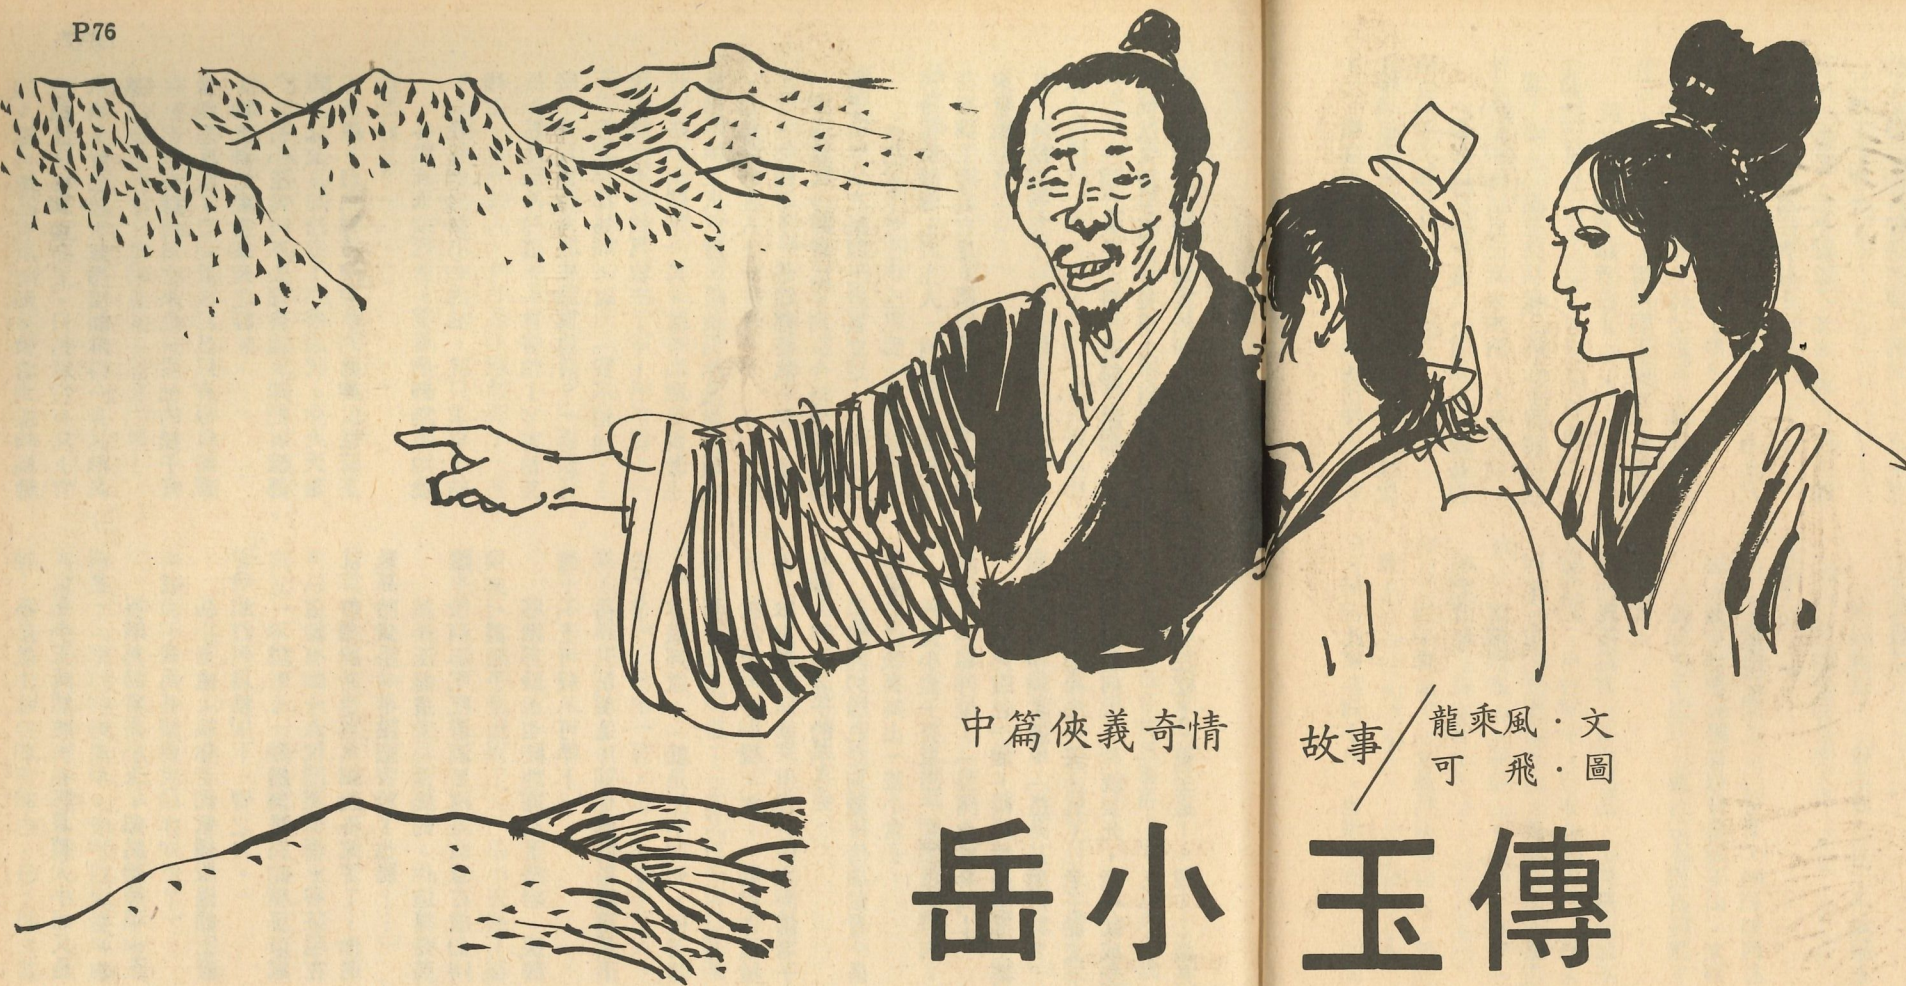 P76
中篇俠義奇情故事/龍乘風·文
可飛·圖
岳小玉傳